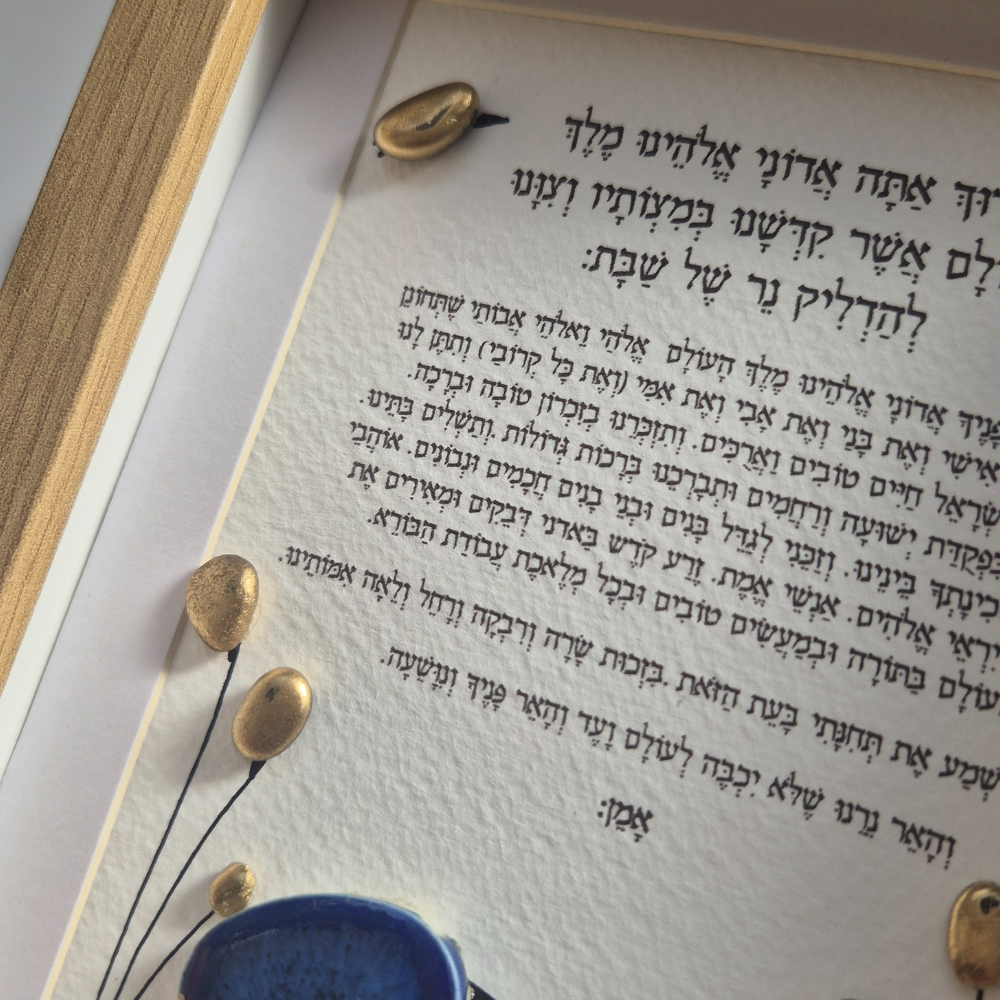 אַתָּה אֲדוֹנָי אֱלֹהֵינוּ מֶלֶךְ
אֲשֶׁר קִדְּשָׁנוּ בְּמִצְוֹתָיו וְצִוָּנוּ
לְהַדְלִיק נֵר שֶׁל שַׁבָּת:
אֲדוֹנָי אֱלֹהֵינוּ מֶלֶךְ הָעוֹלָם אֱלֹהַי וֵאלֹהֵי אֲבוֹתַי שֶׁתְּחוֹנֵן
אִישִׁי וְאֶת בָּנַי וְאֶת אָבִי וְאֶת אִמִּי (וְאֶת כָּל קְרוֹבַי) וְתִתֵּן לָנוּ
חַיִּים טוֹבִים וַאֲרֻכִּים. וְתִזְכְּרֵנוּ בְּזִכְרוֹן טוֹבָה וּבְרָכָה.
יְשׁוּעָה וְרַחֲמִים וּתְבָרְכֵנוּ בְּרָכוֹת גְּדוֹלוֹת וְתַשְׁלִים בָּתֵּינוּ.
בֵּינֵינוּ. וְזַכֵּנִי לְגַדֵּל בָּנִים וּבְנֵי בָנִים חֲכָמִים וּנְבוֹנִים. אוֹהֲבֵי
יִרְאֵי אֱלֹהִים. אַנְשֵׁי אֱמֶת. זֶרַע קֹדֶשׁ בַּאדני דְּבֵקִים וּמְאִירִים אֶת
בַּתּוֹרָה וּבְמַעֲשִׂים טוֹבִים וּבְכָל מְלֶאכֶת עֲבוֹדַת הַבּוֹרֵא.
אֶת תְּחִנָּתִי בָּעֵת הַזֹּאת. בִּזְכוּת שָׂרָה וְרִבְקָה וְרָחֵל וְלֵאָה אִמּוֹתֵינוּ.
וְהָאֵר נֵרֵנוּ שֶׁלֹּא יִכְבֶּה לְעוֹלָם וָעֶד וְהָאֵר פָּנֶיךָ וְנִוָּשֵׁעָה.
אָמֵן: